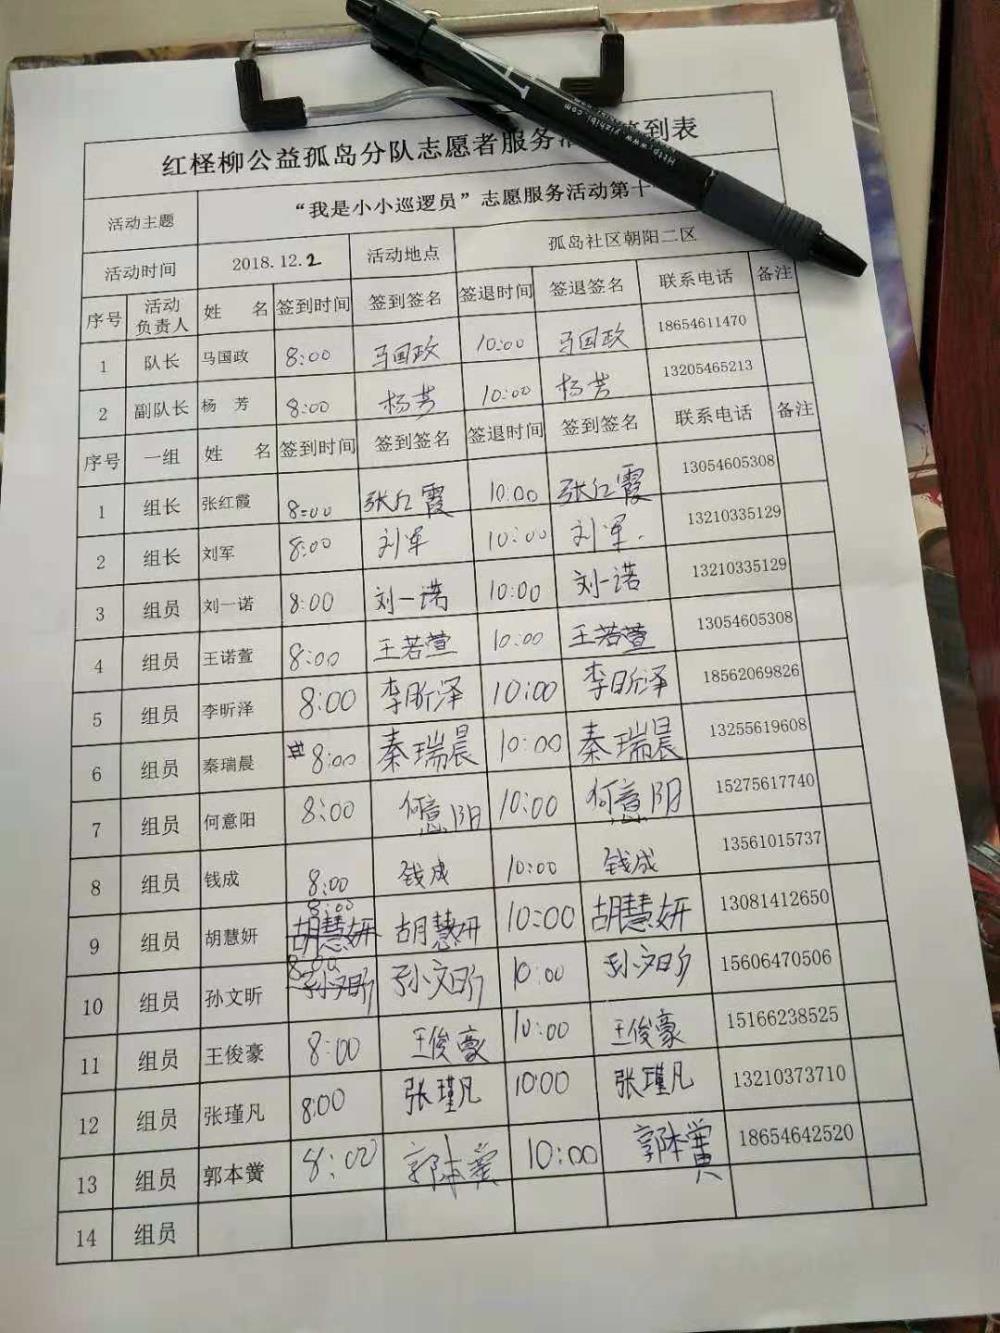 红柽柳公益孤岛分队志愿者服务 到表
活动主题 “我是小小巡逻员”志愿服务活动第十
活动时间 2018.12.2 活动地点 孤岛社区朝阳二区
序号 活动负责人 姓 名 签到时间 签到签名 签退时间 签退签名 联系电话 备注
1 队长 马国政 8:00 马国政 10:00 马国政 18654611470
2 副队长 杨 芳 8:00 杨芳 10:00 杨芳 13205465213
序号 一组 姓 名 签到时间 签到签名 签退时间 签退签名 联系电话 备注
1 组长 张红霞 8:00 张红霞 10:00 张红霞 13054605308
2 组长 刘军 8:00 刘军 10:00 刘军. 13210335129
3 组员 刘一诺 8:00 刘一诺 10:00 刘一诺 13210335129
4 组员 王诺萱 8:00 王若萱 10:00 王若萱 13054605308
5 组员 李昕泽 8:00 李昕泽 10:00 李昕泽 18562069826
6 组员 秦瑞晨 8:00 秦瑞晨 10:00 秦瑞晨 13255619608
7 组员 何意阳 8:00 何意阳 10:00 何意阳 15275617740
8 组员 钱成 8:00 钱成 10:00 钱成 13561015737
9 组员 胡慧妍 8:00 胡慧妍 胡慧妍 10:00 胡慧妍 13081412650
10 组员 孙文昕 8:00 孙文昕 孙文昕 10:00 孙文昕 15606470506
11 组员 王俊豪 8:00 王俊豪 10:00 王俊豪 15166238525
12 组员 张瑾凡 8:00 张瑾凡 10:00 张瑾凡 13210373710
13 组员 郭本黉 8:00 郭本黉 10:00 郭本黉 18654642520
14 组员